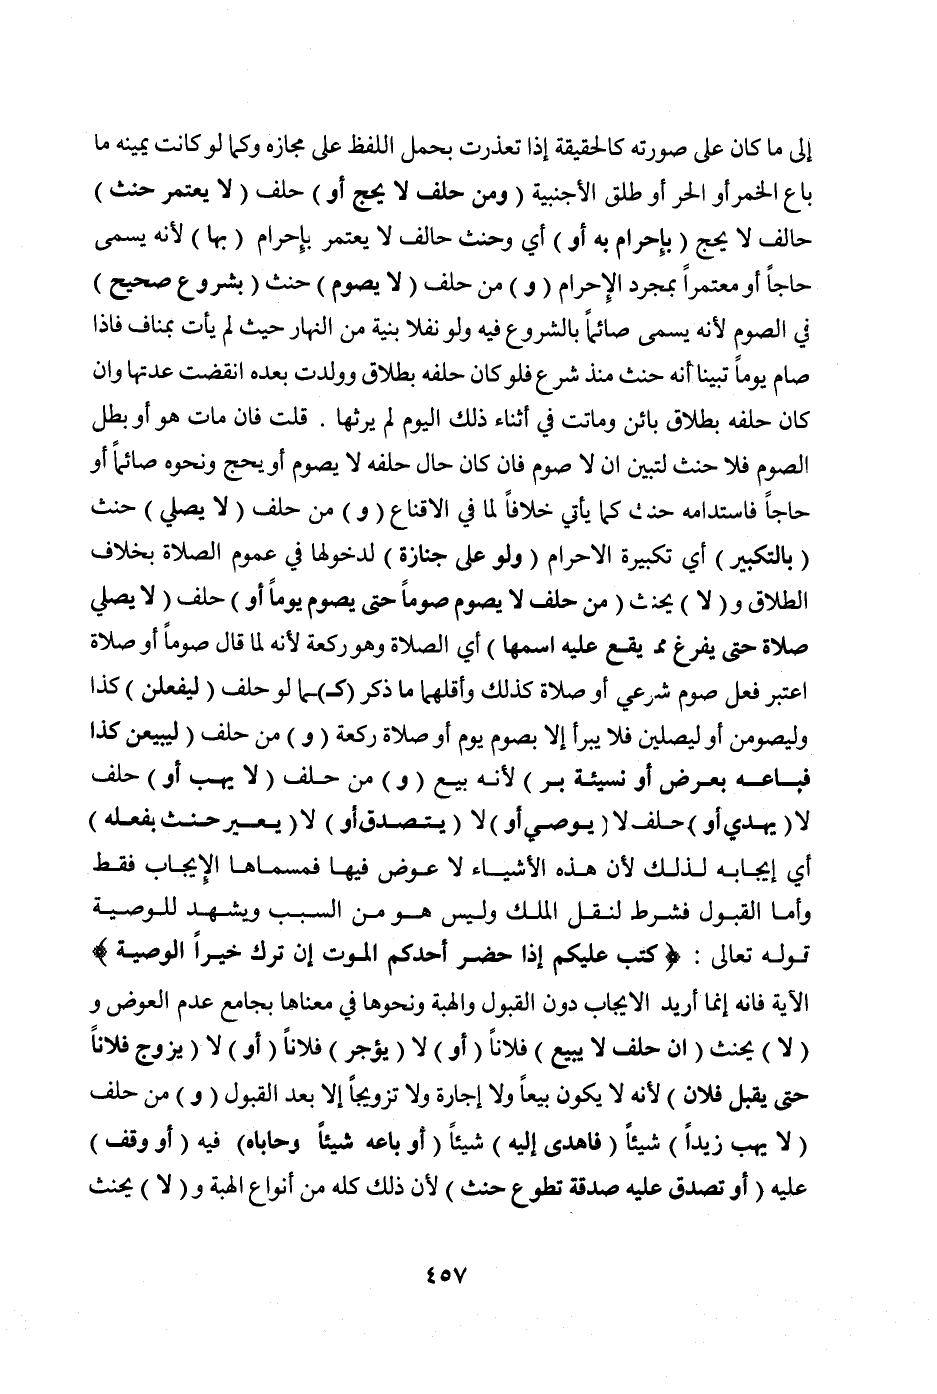 إلى ما كان على صورته كالحقيقة إذا تعذرت بحمل اللفظ على مجازه وكما لو كانت يمينه ما
باع الخمر أو الحر أو طلق الأجنبية ( ومن حلف لا يحج أو ) حلف ( لا يعتمر حنث )
حالف لا يحج ( بإحرام به أو ) أي وحنث حالف لا يعتمر بإحرام ( بها ) لأنه يسمى
حاجاً أو معتمراً بمجرد الإحرام ( و ) من حلف ( لا يصوم ) حنث ( بشروع صحيح )
في الصوم لأنه يسمى صائماً بالشروع فيه ولو نفلا بنية من النهار حيث لم يأت بمناف فاذا
صام يوماً تبينا أنه حنث منذ شرع فلو كان حلفه بطلاق وولدت بعده انقضت عدتها وان
كان حلفه بطلاق بائن وماتت في أثناء ذلك اليوم لم يرثها . قلت فان مات هو أو بطل
الصوم فلا حنث لتبين ان لا صوم فان كان حال حلفه لا يصوم أو يحج ونحوه صائماً أو
حاجاً فاستدامه حنث كما يأتي خلافاً لما في الاقناع ( و ) من حلف ( لا يصلي ) حنث
( بالتكبير ) أي تكبيرة الاحرام ( ولو على جنازة ) لدخولها في عموم الصلاة بخلاف
الطلاق و ( لا ) يحنث ( من حلف لا يصوم صوماً حتى يصوم يوماً أو ) حلف ( لا يصلي
صلاة حتى يفرغ مم يقع عليه اسمها ) أي الصلاة وهو ركعة لأنه لما قال صوماً أو صلاة
اعتبر فعل صوم شرعي أو صلاة كذلك وأقلهما ما ذكر (كـ)ـما لو حلف ( ليفعلن ) كذا
وليصومن أو ليصلين فلا يبرأ إلا بصوم يوم أو صلاة ركعة ( و ) من حلف ( ليبيعن كذا
فباعه بعرض أو نسيئة بر ) لأنه بيع ( و ) من حلف ( لا يهب أو ) حلف
لا ( يهدي أو ) حلف لا ( يوصي أو ) لا ( يتصدق أو ) لا ( يعير حنث بفعله )
أي إيجابه لذلك لأن هذه الأشياء لا عوض فيها فمسماها الإيجاب فقط
وأما القبول فشرط لنقل الملك وليس هو من السبب ويشهد للوصية
قوله تعالى : ﴿ كتب عليكم إذا حضر أحدكم الموت إن ترك خيراً الوصية ﴾
الآية فانه إنما أريد الايجاب دون القبول والهبة ونحوها في معناها بجامع عدم العوض و
( لا ) يحنث ( ان حلف لا يبيع ) فلاناً ( أو ) لا ( يؤجر ) فلاناً ( أو ) لا ( يزوج فلاناً
حتى يقبل فلان ) لأنه لا يكون بيعاً ولا إجارة ولا تزويجاً إلا بعد القبول ( و ) من حلف
( لا يهب زيداً ) شيئاً ( فاهدى إليه ) شيئاً ( أو باعه شيئاً وحاباه ) فيه ( أو وقف )
عليه ( أو تصدق عليه صدقة تطوع حنث ) لأن ذلك كله من أنواع الهبة و ( لا ) يحنث
٤٥٧